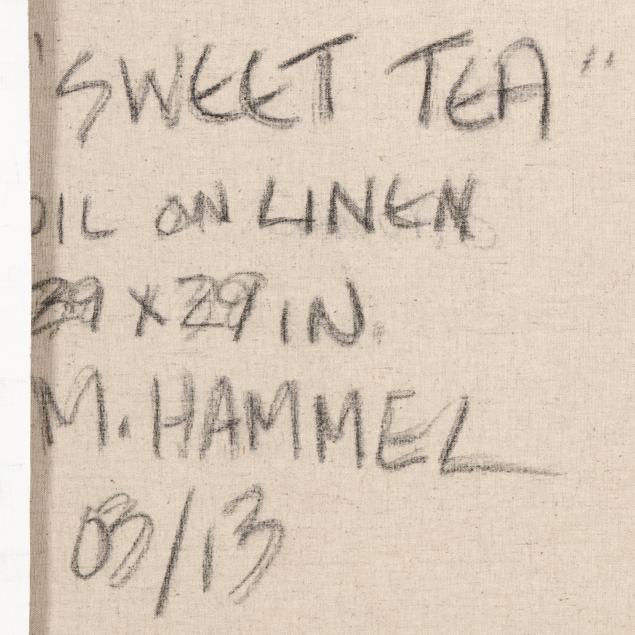 "SWEET TEA"
OIL ON LINEN
29 X 29 IN.
M. HAMMEL
03/13